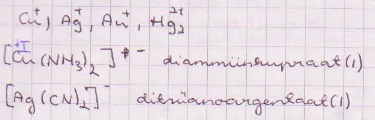 Cu⁺, Ag⁺, Au⁺, Hg₂²⁺
[Cu(NH₃)₂]⁺⁻ diammiinkupraat(1)
[Ag(CN)₂]⁻ ditsüanoargentaat(1)